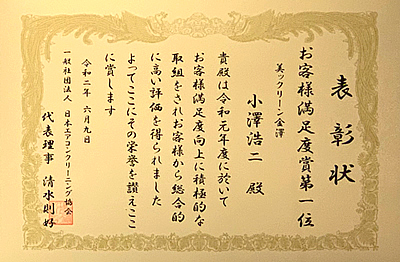 表彰状
お客様満足度賞第一位
美ックリーン金澤
小澤浩二 殿
貴殿は令和元年度に於いて
お客様満足度向上に積極的な
取組をされお客様から総合的
に高い評価を得られました
よってここにその栄誉を讃えここ
に賞します
令和二年 六月九日
一般社団法人 日本エアコンクリーニング協会
代表理事 清水則好